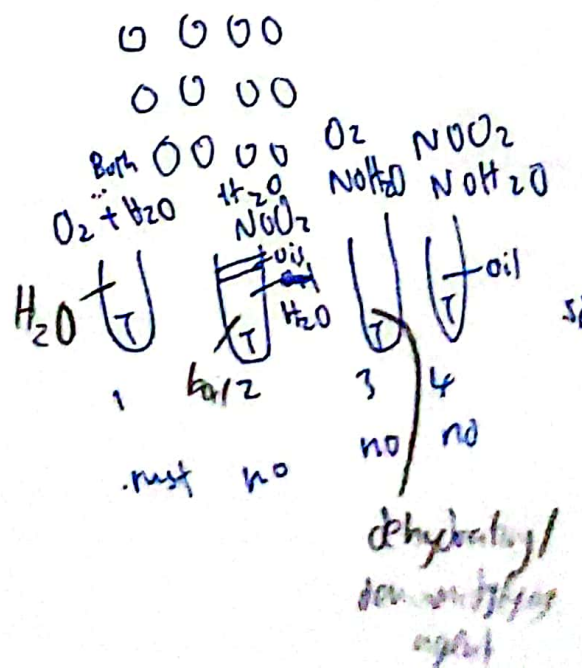 O O O O
O O O O
Both O O O O
O2 + H2O
H2O
NO O2
O2
NO H2O
NO O2
NO H2O
H2O
T
oil
H2O
T
T
oil
T
1
2
3
4
rust
no
no
no
dehydrating/
agent